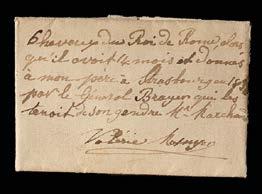 6 heveux du Roi de Rome, lors
qu'il avoit 14 mois et donnés
à mon père à Strasbourg en
par le Général Brayer qui les
tenoit de son gendre Mr Marchand
Valérie